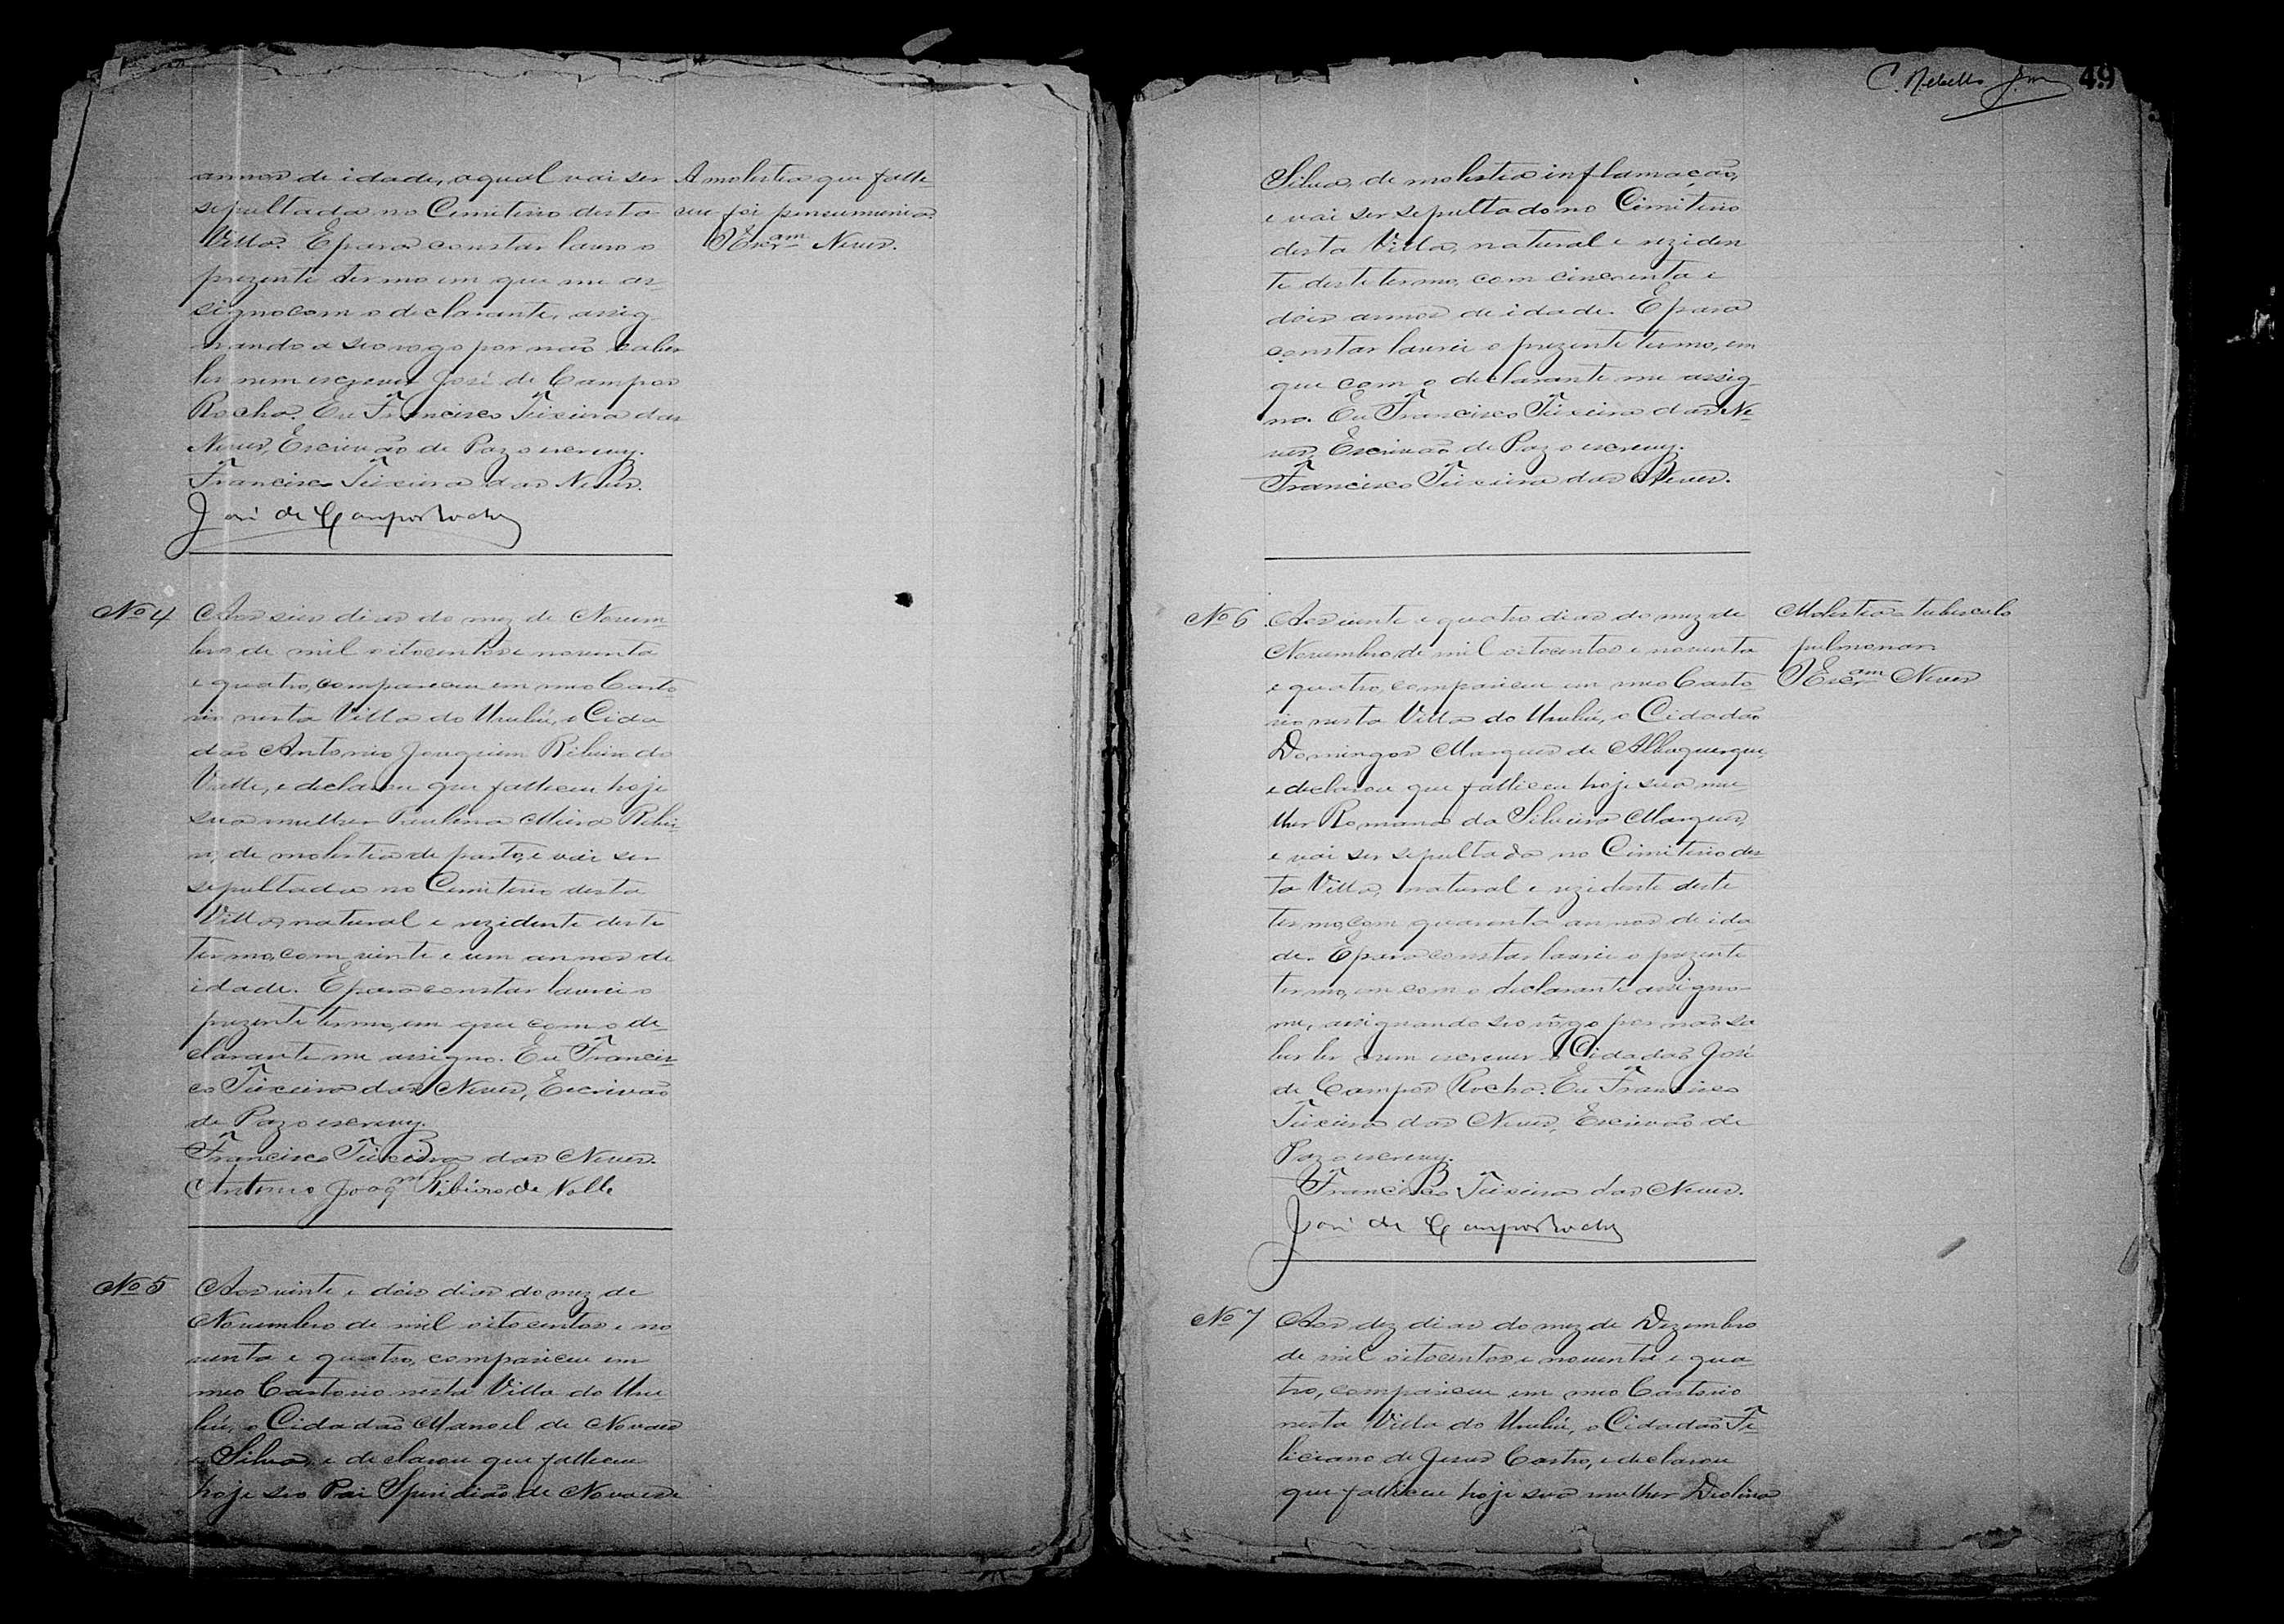 annos de idade, a qual vai ser
sepultada no Cemiterio desta
Villa. E para constar lavro o
prezente termo em que me as-
signo com o declarante, assig-
nando a seo rogo por não saber
ler nem escrever José de Campos
Rocha. Eu Francisco Teixeira das
Neves, Escrivão de Paz o escrevy.
Francisco Teixeira das Neves.
José de Campos Rocha
A molestia que falle-
ceu foi pneumunia.
O Escram Neves.
Nº 4
Aos seis dias do mez de Novem-
bro de mil oitocentos e noventa
e quatro, compareceu em meo Carto
rio nesta Villa do Urubú, o Cida
dão Antonio Joaquim Ribeiro do
Valle, e declarou que falleceu hoje
sua mulher Ribei
ro, de molestia de parto, e vai ser
sepultada no Cemiterio desta
Villa, natural e rezidente deste
termo, com vinte e um annos de
idade. E para constar lavrei o
prezente termo, em que com o de-
clarante me assigno. Eu Francis-
co Teixeira das Neves, Escrivão
de Paz o escrevy.
Francisco Teixeira das Neves.
Antonio Joaqm Ribeiro do Valle
Nº 5
Aos vinte e dois dias do mez de
Novembro de mil oitocentos e no
venta e quatro, compareceu em
meo Cartorio nesta Villa do Uru
bú, o Cidadão Manoel de Novaes
e Silva, e declarou que falleceu
hoje seo Pai Spiridião de Novaes e
C. Rebello J.or
49
Silva, de molestia inflamação,
e vai ser sepultado no Cimiterio
desta Villa, natural e rezidem
te deste termo, com cincoenta e
dois annos de idade. E para
constar lavrei o prezente termo, em
que com o declarante me assig-
no. Eu Francisco Teixeira das Ne-
ves, Escrivão de Paz o escrevy.
Francisco Teixeira das Neves.
Nº 6
Aos vinte e quatro dias do mez de
Novembro de mil oitocentos e noventa
e quatro, compareceu em meo Carto
rio nesta Villa do Urubú, o Cidadão
Domingos Marques de Albuquerque,
e declarou que falleceu hoje sua mu
lher Romana da Silveira Marques,
e vai ser sepultada no Cimiterio des-
ta Villa, natural e rezidente deste
termo, com quarenta annos de ida
de. E para constar lavrei o prezente
termo, em com o declarante assigno-
me, assignando seo rogo por não sa
ber ler nem escrever o Cidadão José
de Campos Rocha. Eu Francisco
Teixeira das Neves, Escrivão de
Paz o escrevy.
Francisco Teixeira das Neves.
José de Campos Rocha
Molestia = tuberculo
pulmonar
O Escram Neves
Nº 7
Aos dez dias do mez de Dezembro
de mil oitocentos e noventa e qua-
tro, compareceu em meo Cartorio
nesta Villa do Urubú, o Cidadão Fe-
liciano de Jesus Castro, e declarou
que falleceu hoje sua mulher Diolina